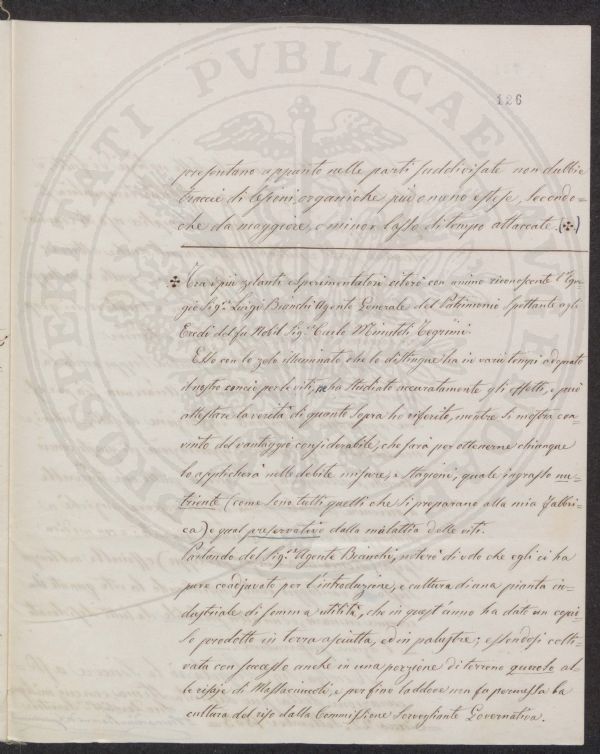 126
presentano appunto nelle parti suddivisate non dubbie
traccie di lesioni organiche più o meno estese, secondo=
che da maggiore, o minor lasso di tempo attaccate. (✤)
✤ Tra i più zelanti esperimentatori citerò con animo riconoscente l'Egre-
gio Sig.r Luigi Bianchi Agente Generale del Patrimonio Spettante agli
Eredi del fu Nobil Sig.r Carlo Minutoli Tegrimi.
Esso con lo zelo illuminato che lo distingue ha in varii tempi adoprato
il nostro concio per le viti, ne ha studiato accuratamente gli effetti, e può
attestare la verità di quanto sopra ho riferito, mentre si mostra con-
vinto del vantaggio considerabile, che sarà per ottenerne chiunque
lo applicherà nelle debite misure, e stagioni, quale ingrasso nu-
triente (come sono tutti quelli che si preparano alla mia fabbri-
ca) e qual preservativo dalla malattia delle viti.
Parlando del Sig.r Agente Bianchi, noterò di volo che egli ci ha
pure coadjuvato per l'introduzione, e cultura di una pianta in-
dustriale di somma utilità, che in quest'anno ha dato un copio-
so prodotto in terra asciutta, ed in palustre; essendosi colti-
vata con successo anche in una porzione di terreno quando al-
le risaje di Massaciuccoli, e perfino laddove non fu permessa la
cultura del riso dalla Commissione Sorvegliante Governativa.
PROSPERITATI PVBLICAE